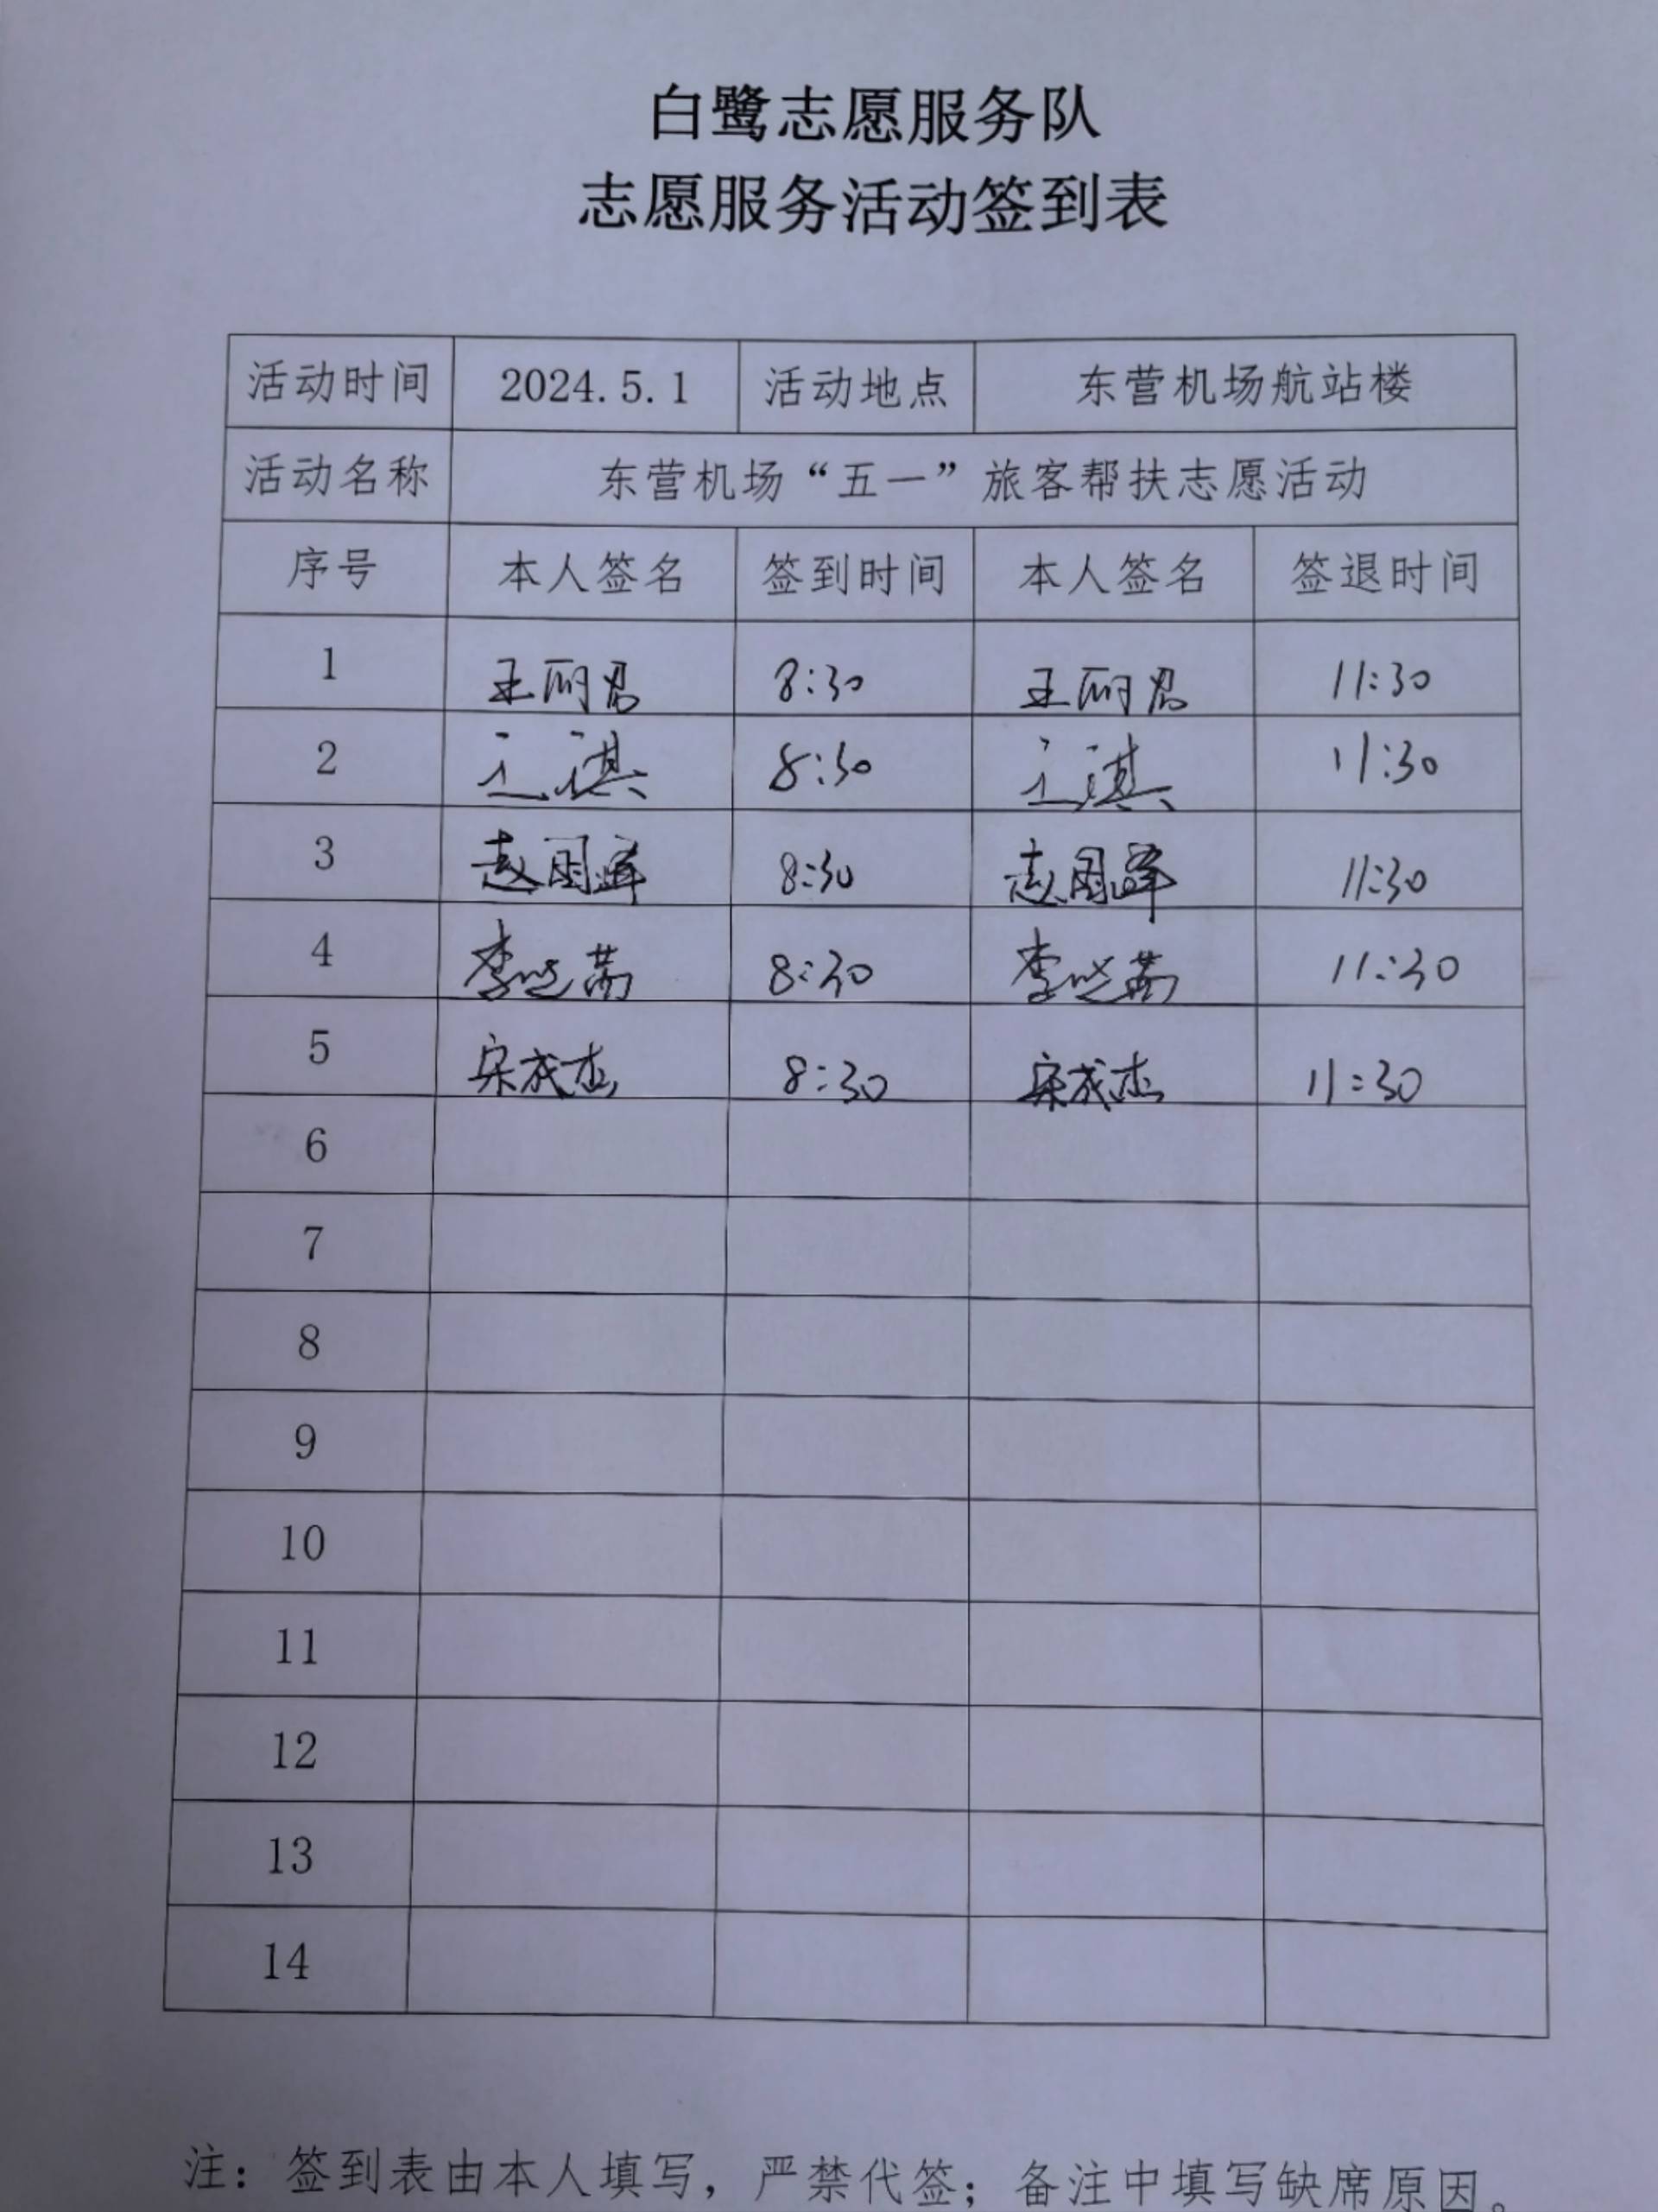 白鹭志愿服务队
志愿服务活动签到表
活动时间 2024.5.1 活动地点 东营机场航站楼
活动名称 东营机场“五一”旅客帮扶志愿活动
序号 本人签名 签到时间 本人签名 签退时间
1 王丽君 8:30 王丽君 11:30
2 8:30 11:30
3 赵国峰 8:30 赵国峰 11:30
4 李晓茜 8:30 李晓茜 11:30
5 宋成杰 8:30 宋成杰 11:30
6
7
8
9
10
11
12
13
14
注：签到表由本人填写，严禁代签；备注中填写缺席原因。